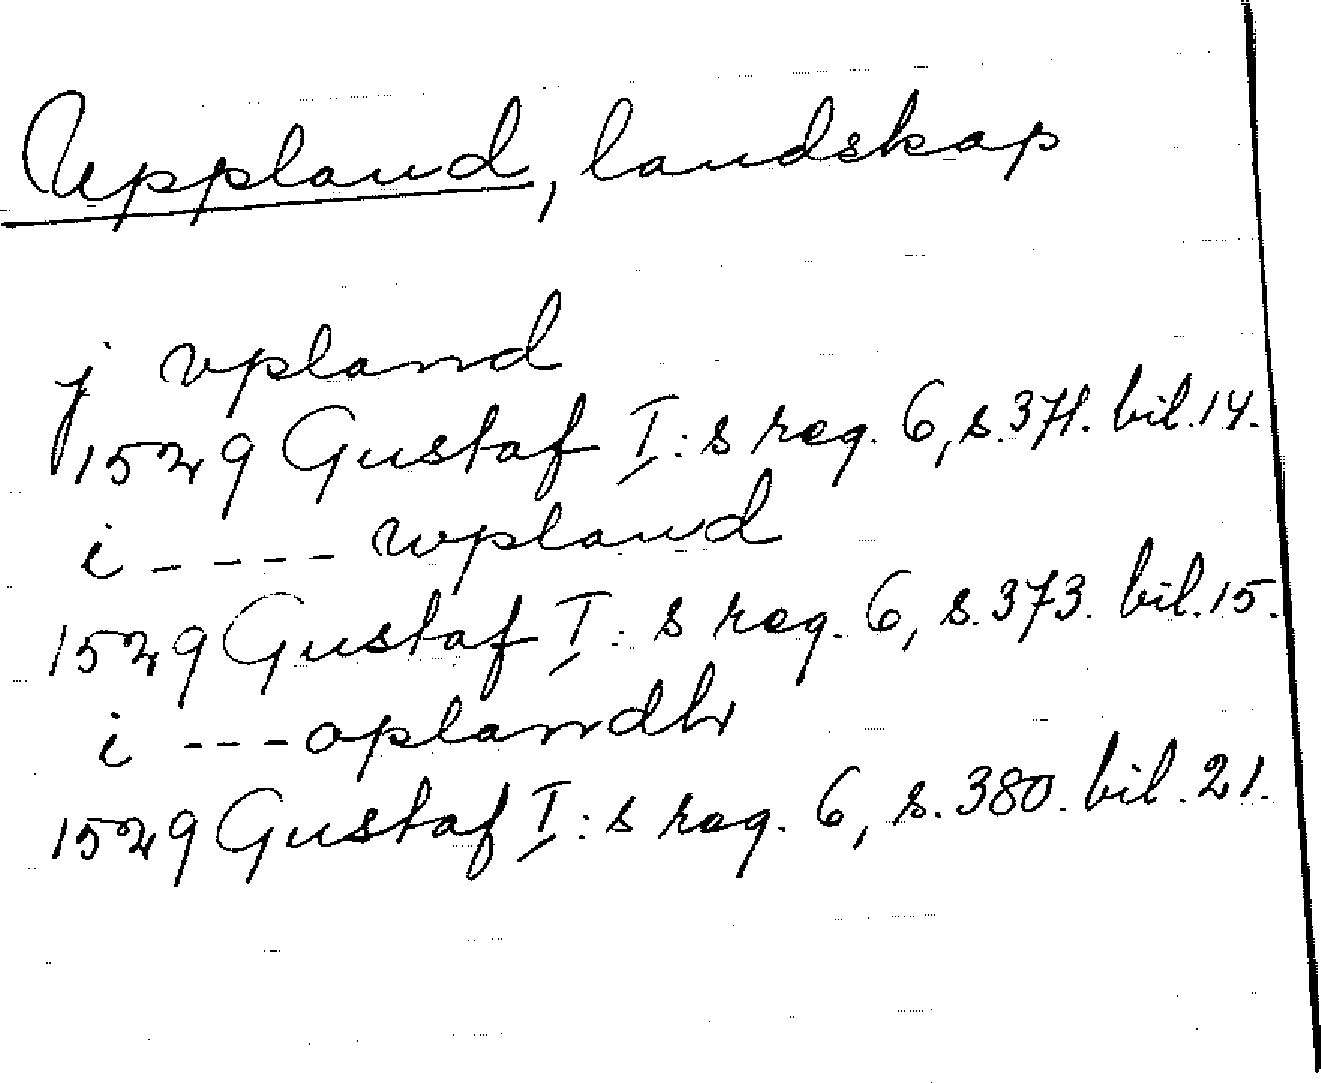 Uppland, landskap
j vpland
1529 Gustaf I:s reg. 6, s. 371. bil. 14.
i ---- wpland
1529 Gustaf I:s reg. 6, s. 373. bil. 15.
i --- oplandh
1529 Gustaf I:s reg. 6, s. 380. bil. 21.